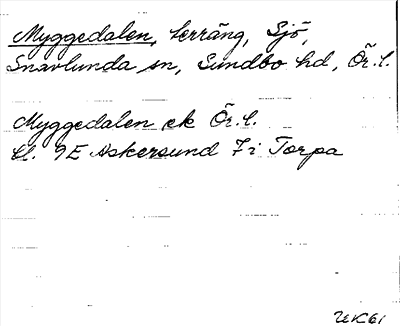 Myggedalen, terräng, Sjö,
Snavlunda sn, Sundbo hd, Ör. l.
Myggedalen ek Ör. l.
bl. 9E Askersund 7 i Torpa
UK61